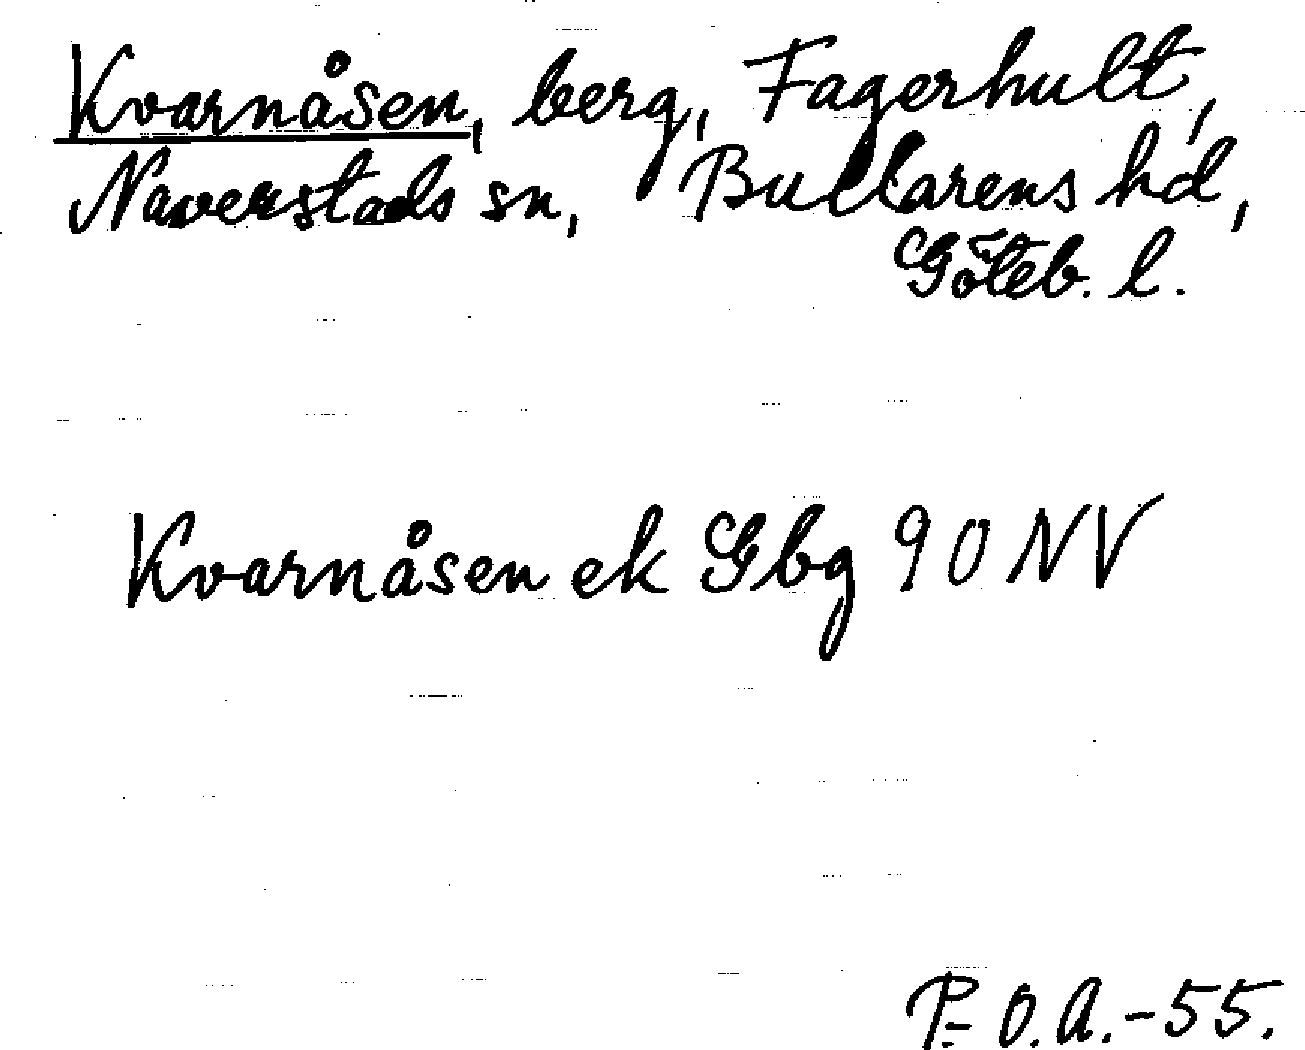 Kvarnåsen, berg, Fagerhult,
Naverstads sn, Bullarens hd,
Göteb. l.
Kvarnåsen ek Gbg 90 NV
P.O.A.-55.